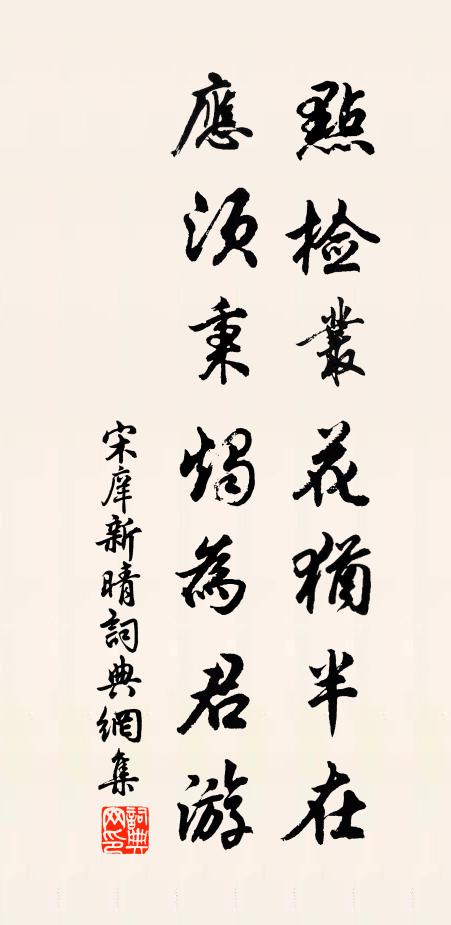 點檢叢花猶半在
應須秉燭為君游
宋庠新晴詞典網集
詞典網印